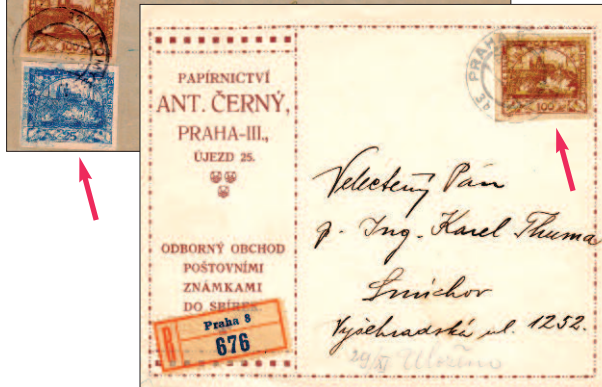 100
25
PAPÍRNICTVÍ
ANT. ČERNÝ,
PRAHA-III.,
ÚJEZD 25.
ODBORNÝ OBCHOD
POŠTOVNÍMI
ZNÁMKAMI
DO SBÍREK
R
Praha 8
676
PRAHA
100
Velectěný Pán
p. Ing. Karel Thuma
Smíchov
Vyšehradská ul. 1252.
29/XI Uloženo